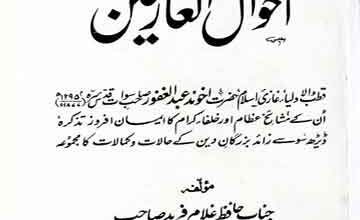 احوال العارفین
قطب الاولیاء غازی اسلام حضرت اخوند عبد الغفور صاحب سوات قدس سرہ (۱۲۹۵ھ ۱۸۷۷ء)
اُن کے مشائخ عظام اور خلفاء کرام کا ایمان افروز تذکرہ
ڈیڑھ سو سے زائد بزرگان دین کے حالات و کمالات کا مجموعہ
مؤلفہ
جناب حافظ غلام فرید صاحب